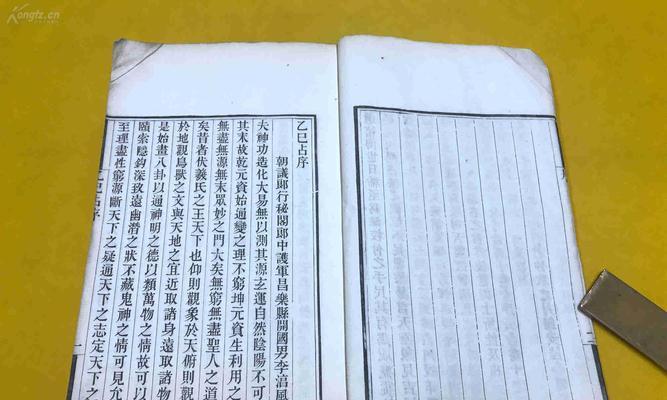 Kongfz.cn
乙巳占序
朝議郎行秘閣郎中護軍昌樂縣開國男李湻風
夫神功造化大易無以測其源玄運自然陰陽不可
其末故乾元資始通變之理不窮坤元資生利用之
無盡無源無末眾妙之門大矣無窮無盡聖人之道
矣昔者伏羲氏之王天下也仰則觀象於天俯則觀
於地觀鳥獸之文與天地之宜近取諸身遠取諸物
是始畫八卦以通神明之德以類萬物之情故可以
賾索隱鉤深致遠幽潛之狀不藏鬼神之情可見允
至理盡性窮源斷天下之疑通天下之志定天下之
乙巳占序